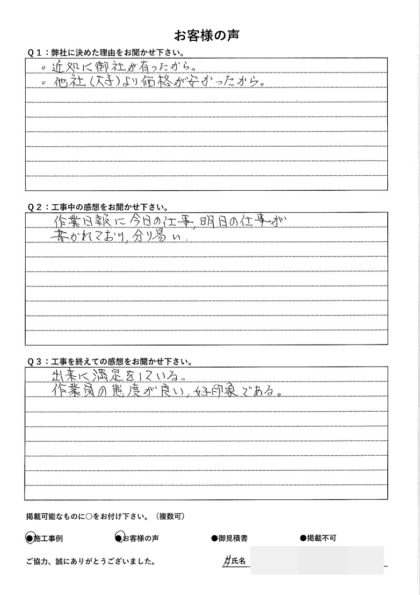 お客様の声
Q1：弊社に決めた理由をお聞かせ下さい。
・近処に御社が有ったから。
・他社(大手)より価格が安かったから。
Q2：工事中の感想をお聞かせ下さい。
作業日報に今日の仕事,明日の仕事が
書かれており,分り易い.
Q3：工事を終えての感想をお聞かせ下さい。
出来に満足をしている。
作業員の態度が良い,好印象である。
掲載可能なものに○をお付け下さい。（複数可）
●施工事例 ●お客様の声 ●御見積書 ●掲載不可
ご協力、誠にありがとうございました。
氏名